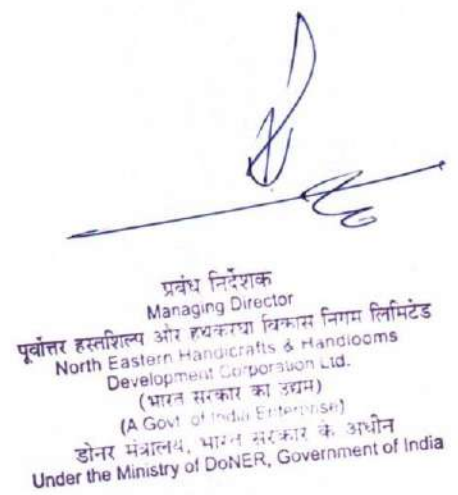 प्रबंध निदेशक
Managing Director
पूर्वोत्तर हस्तशिल्प और हथकरघा विकास निगम लिमिटेड
North Eastern Handicrafts & Handlooms
Development Corporation Ltd.
(भारत सरकार का उद्यम)
(A Govt. of India Enterprise)
डोनर मंत्रालय, भारत सरकार के अधीन
Under the Ministry of DoNER, Government of India